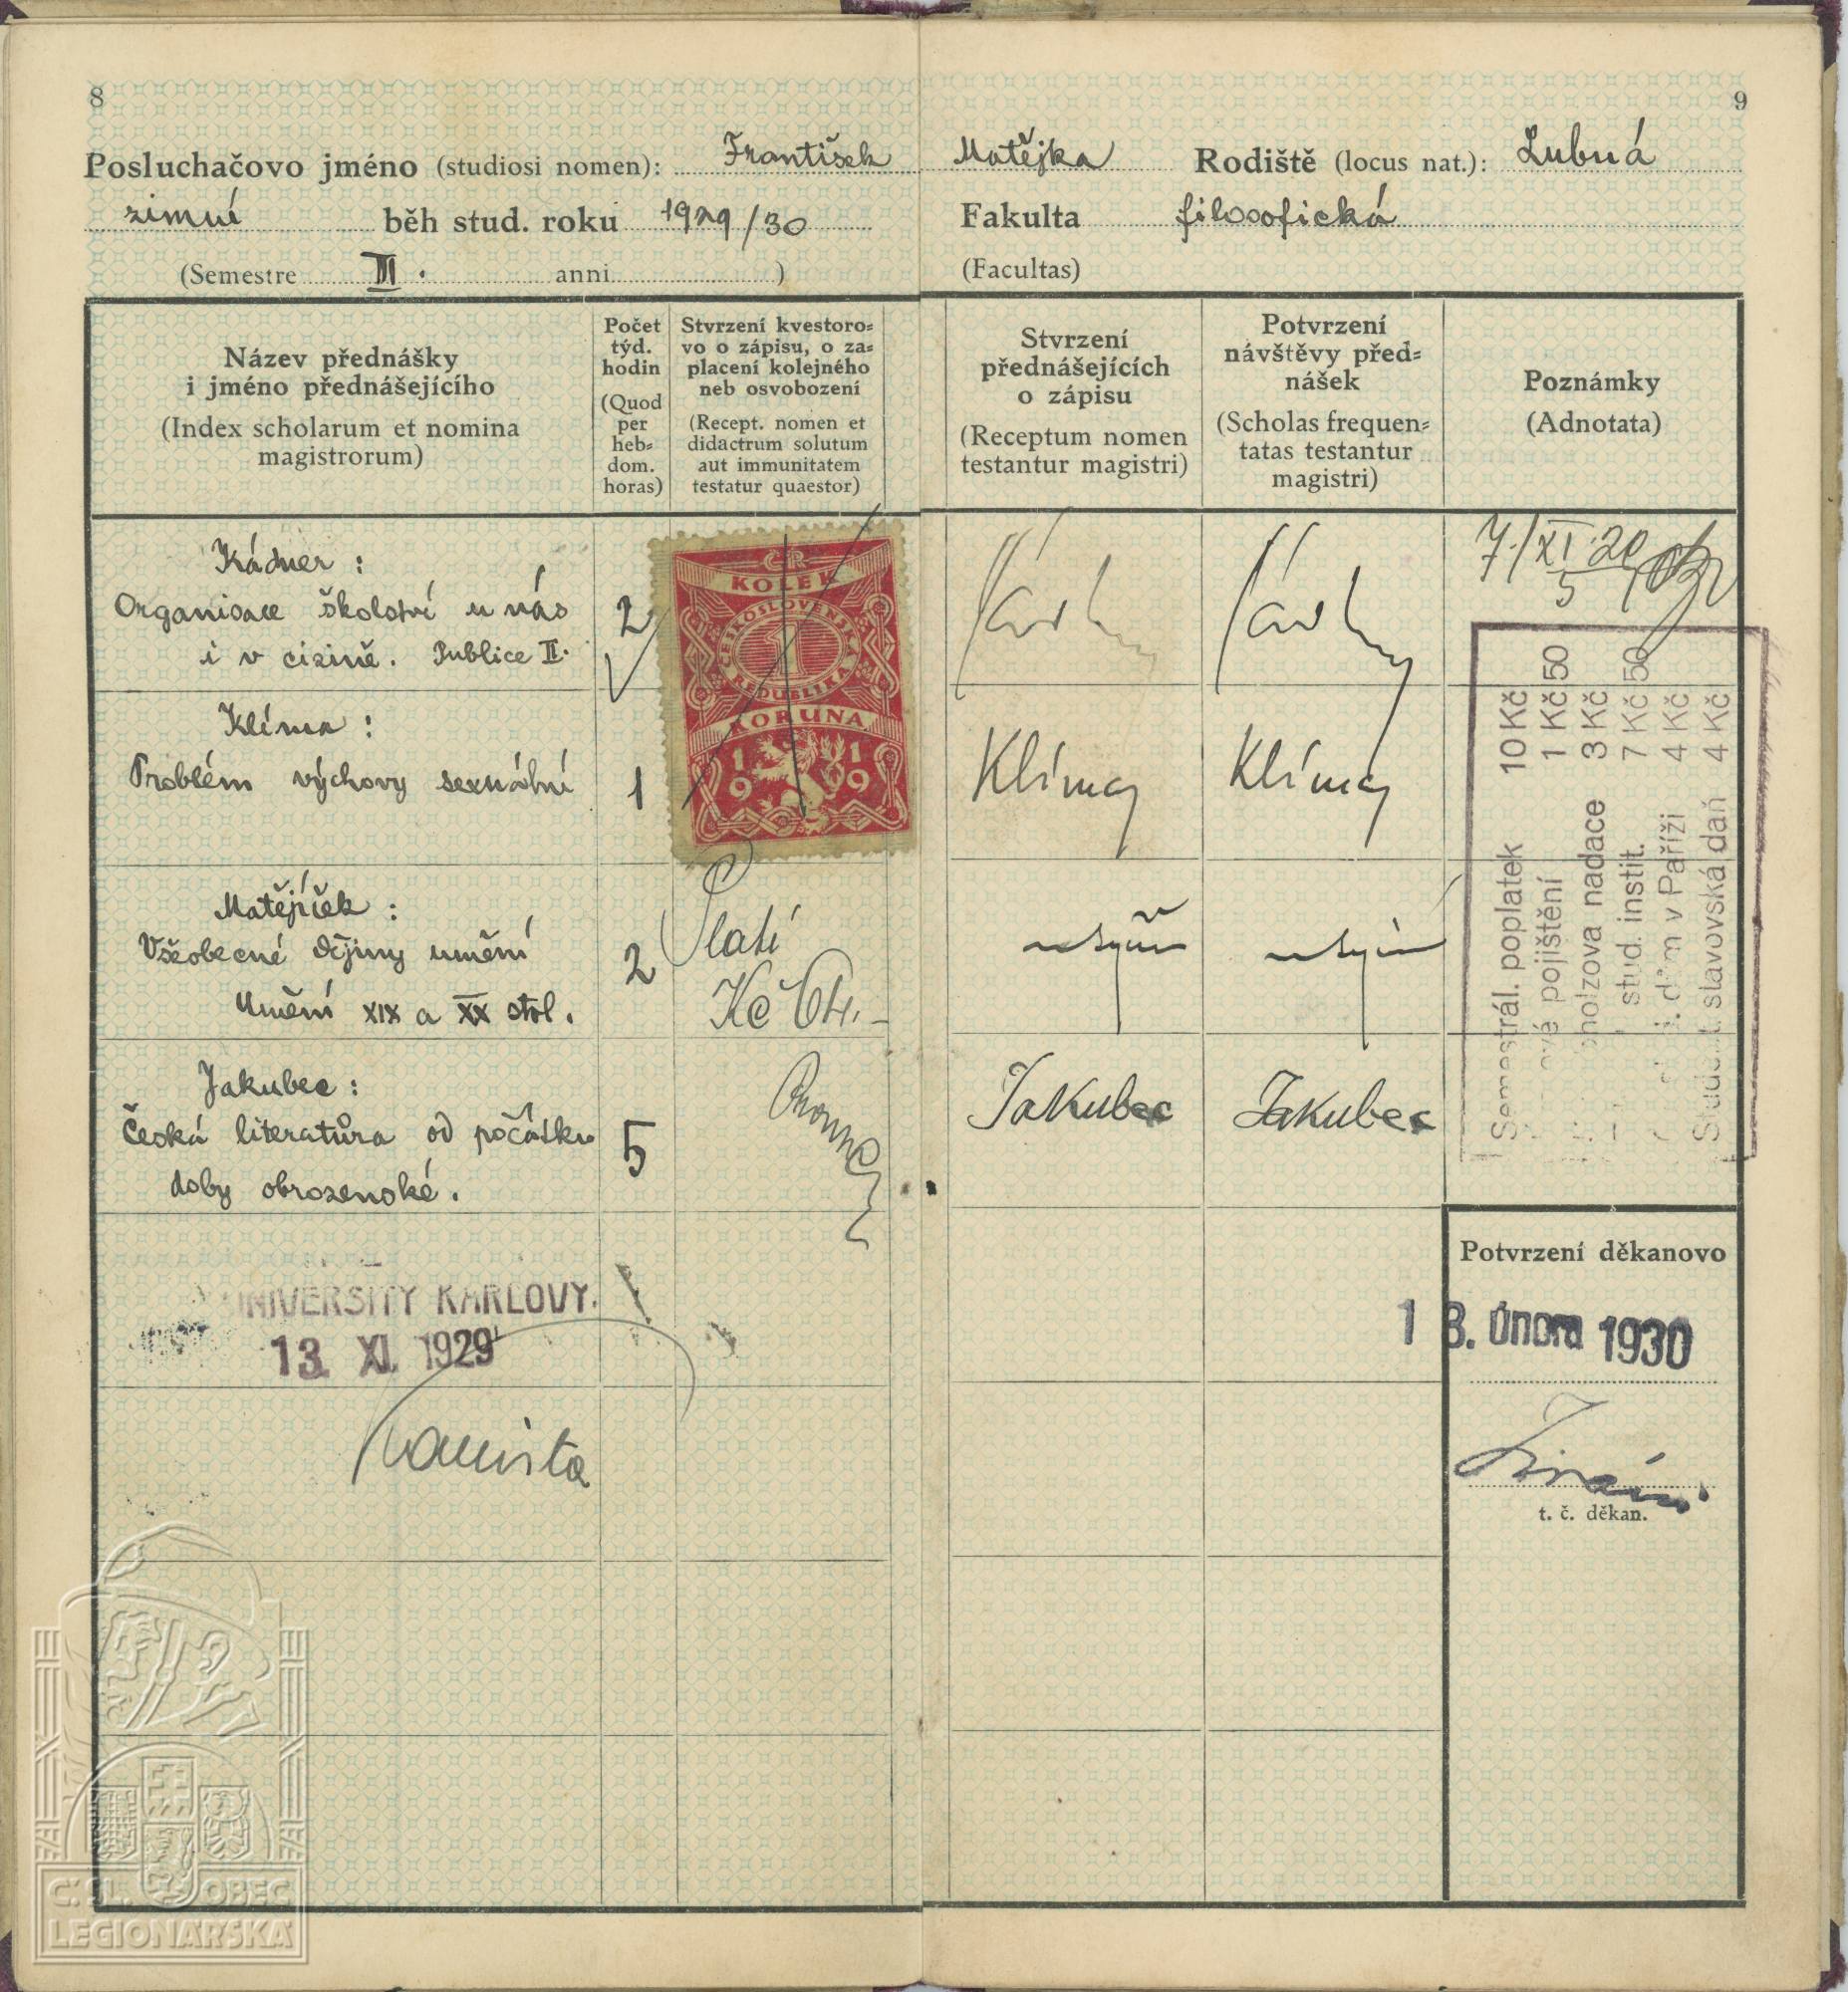 8
9
Posluchačovo jméno (studiosi nomen): František Matějka Rodiště (locus nat.): Lubná
zimní běh stud. roku 1929/30 Fakulta filosofická
(Semestre III. anni ) (Facultas)
Název přednášky
i jméno přednášejícího
(Index scholarum et nomina
magistrorum)
Počet
týd.
hodin
(Quod
per
heb=
dom.
horas)
Stvrzení kvestoro=
vo o zápisu, o za=
placení kolejného
neb osvobození
(Recept. nomen et
didactrum solutum
aut immunitatem
testatur quaestor)
Stvrzení
přednášejících
o zápisu
(Receptum nomen
testantur magistri)
Potvrzení
návštěvy před=
nášek
(Scholas frequen=
tatas testantur
magistri)
Poznámky
(Adnotata)
Kádner:
Organisace školství u nás
i v cizině. Publice II.
2
ČSR
KOLEK
ČESKOSLOVENSKÁ
1
REPUBLIKA
KORUNA
1919
7./XI. 29
5
Klíma:
Problém výchovy sexuální
1
Klíma
Klíma
Matějíček:
Všeobecné dějiny umění
Umění XIX a XX stol.
2
Platí
Kč 64.-
Jakubec:
Česká literatůra od počátku
doby obrozenské.
5
Jakubec
Jakubec
Semestrál. poplatek 10 Kč
pojištění 1 Kč 50
nadace 3 Kč
stud. instit. 7 Kč 50
dům v Paříži 4 Kč
Student. slavovská daň 4 Kč
UNIVERSITY KARLOVY.
13. XI. 1929
Potvrzení děkanovo
18. února 1930
t. č. děkan.
Č. SL. OBEC
LEGIONÁŘSKÁ